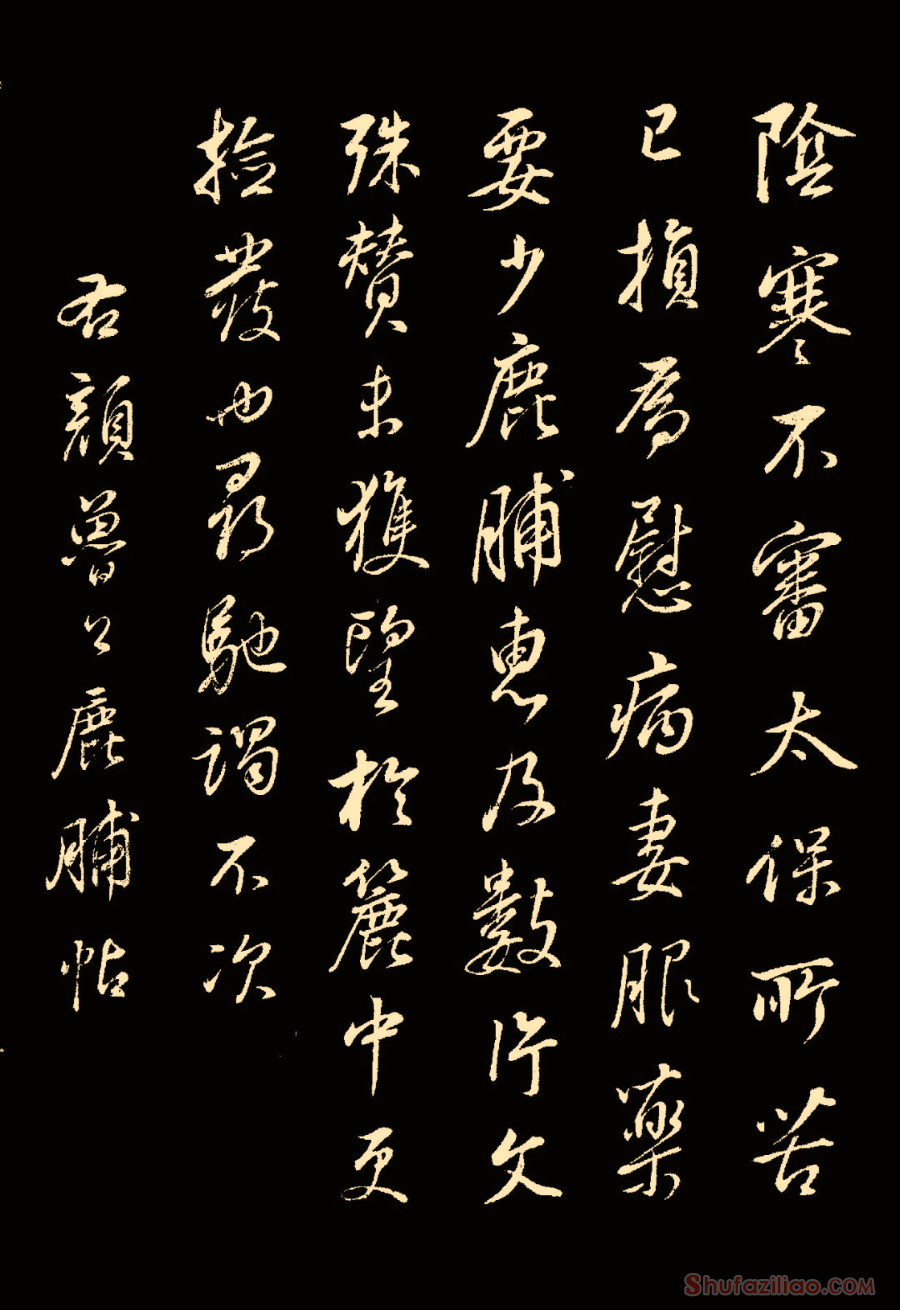 陰寒不審太保所苦
已損為慰病妻服藥
要少鹿脯惠及數片文
殊贊未獲望於簏中更
撿發也尋馳謁不次
右顏魯公鹿脯帖
Shufaziliao.COM